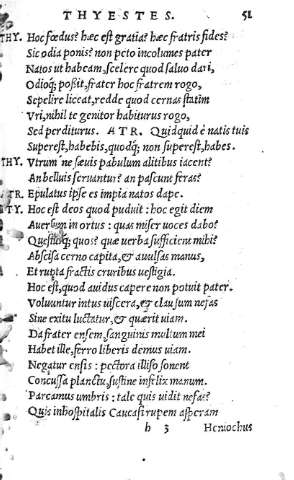 THYESTES. 51
THY. Hoc fœdus? hæc est gratia? hæc fratris fides?
Sic odia ponis? non peto incolumes pater
Natos ut habeam, scelere quod saluo dari,
Odioq; possit, frater hoc fratrem rogo,
Sepelire liceat, redde quod cernas statim
Vri, nihil te genitor habiturus rogo,
Sed perditurus. ATR. Quidquid è natis tuis
Superest, habebis, quodq; non superest, habes.
THY. Vtrum ne sæuis pabulum alitibus iacent?
An belluis seruantur? an pascunt feras?
TR. Epulatus ipse es impia natos dape.
TY. Hoc est deos quod puduit: hoc egit diem
Auersum in ortus: quas miser uoces dabo?
Questusq; quos? quæ uerba sufficient mihi?
Abscisa cerno capita, & auulsas manus,
Et rupta fractis cruribus uestigia.
Hoc est, quod auidus capere non potuit pater.
Voluuntur intus uiscera, & clausum nefas
Sine exitu luctatur, & quærit uiam.
Da frater ensem, sanguinis multum mei
Habet ille, ferro liberis demus uiam.
Negatur ensis: pectora illiso sonent
Concussa planctu, sustine infelix manum.
Parcamus umbris: tale quis uidit nefas?
Quis inhospitalis Caucasi rupem asperam
h 3 Heniochus